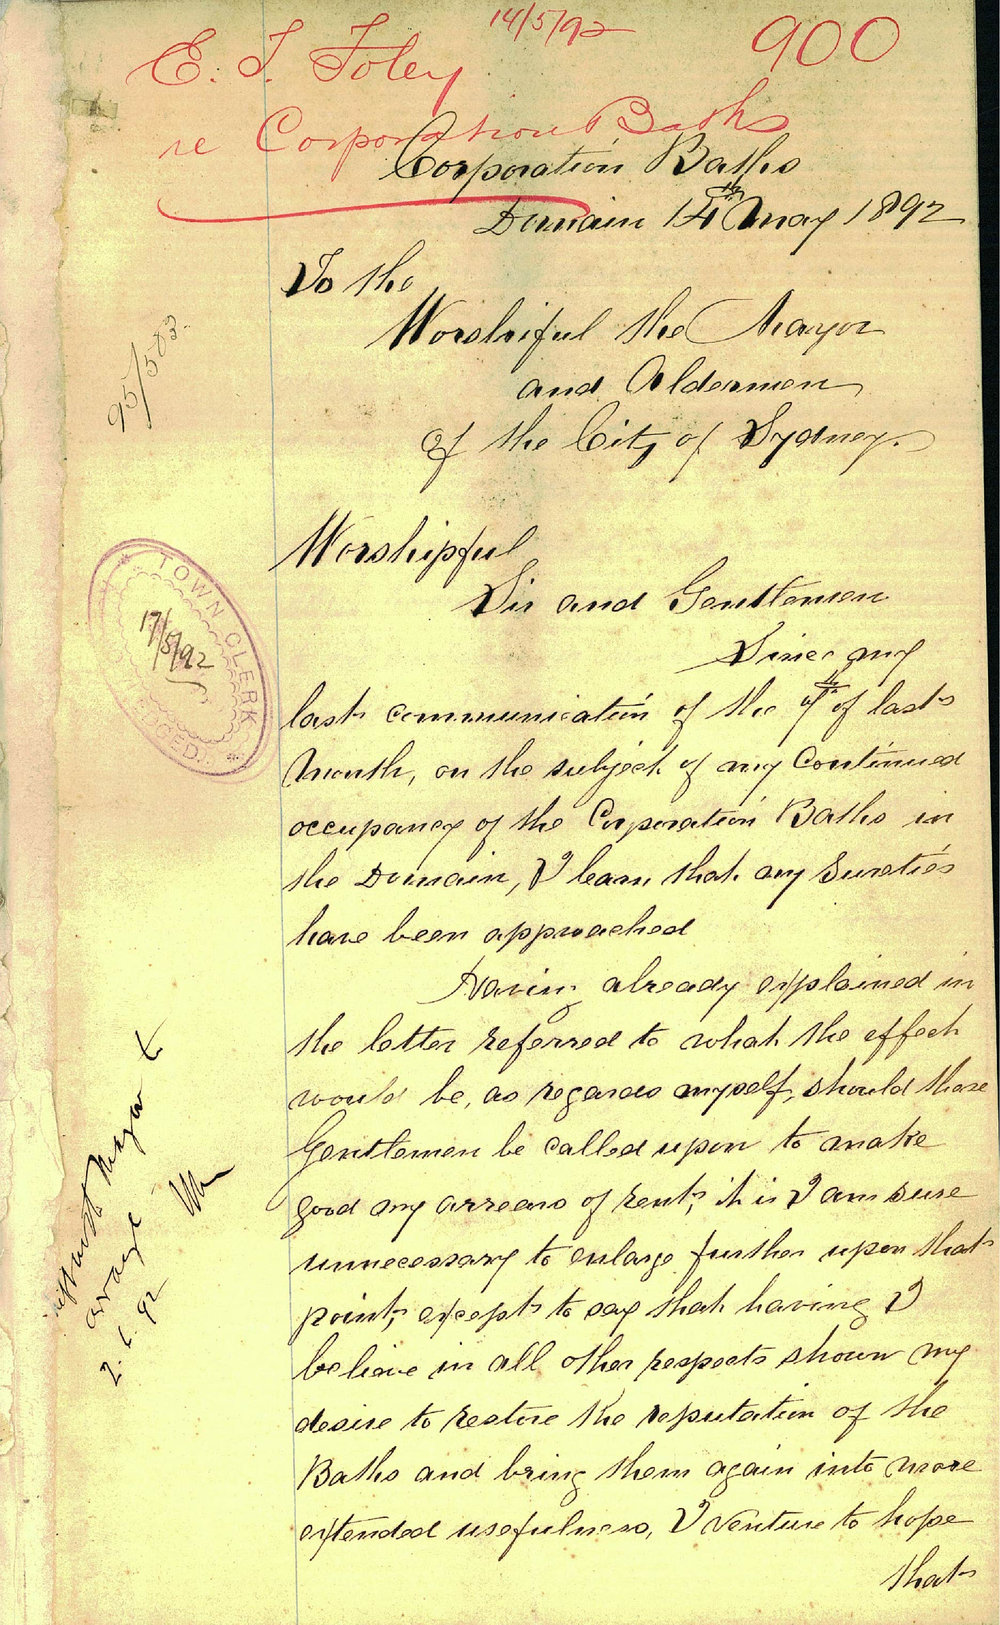 14/5/92
900
E. T. Foley
re Corporation Baths
Corporation Baths
Domain 14th May 1892
To the
Worshipful the Mayor
and Aldermen
of the City of Sydney.
95/583.
Worshipful
Sir and Gentlemen
TOWN CLERK
17/5/92
Since my
last communication of the of last
Month, on the subject of my Continued
occupancy of the Corporation Baths in
the Domain, I learn that my Sureties
have been approached
Having already explained in
the letter referred to what the effect
would be, as regards myself, should these
Gentlemen be called upon to make
good my arrears of rent, it is I am sure
unnecessary to enlarge further upon that
point, except to say that having I
believe in all other respects shown my
desire to restore the reputation of the
Baths and bring them again into more
extended usefulness, I venture to hope
that
Mayor to
arrange
2.6.92